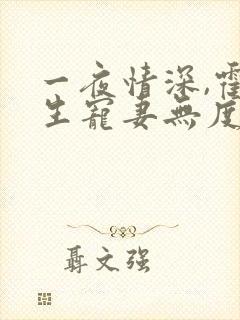 一夜情深,霍
生寵妻無度
聶文强